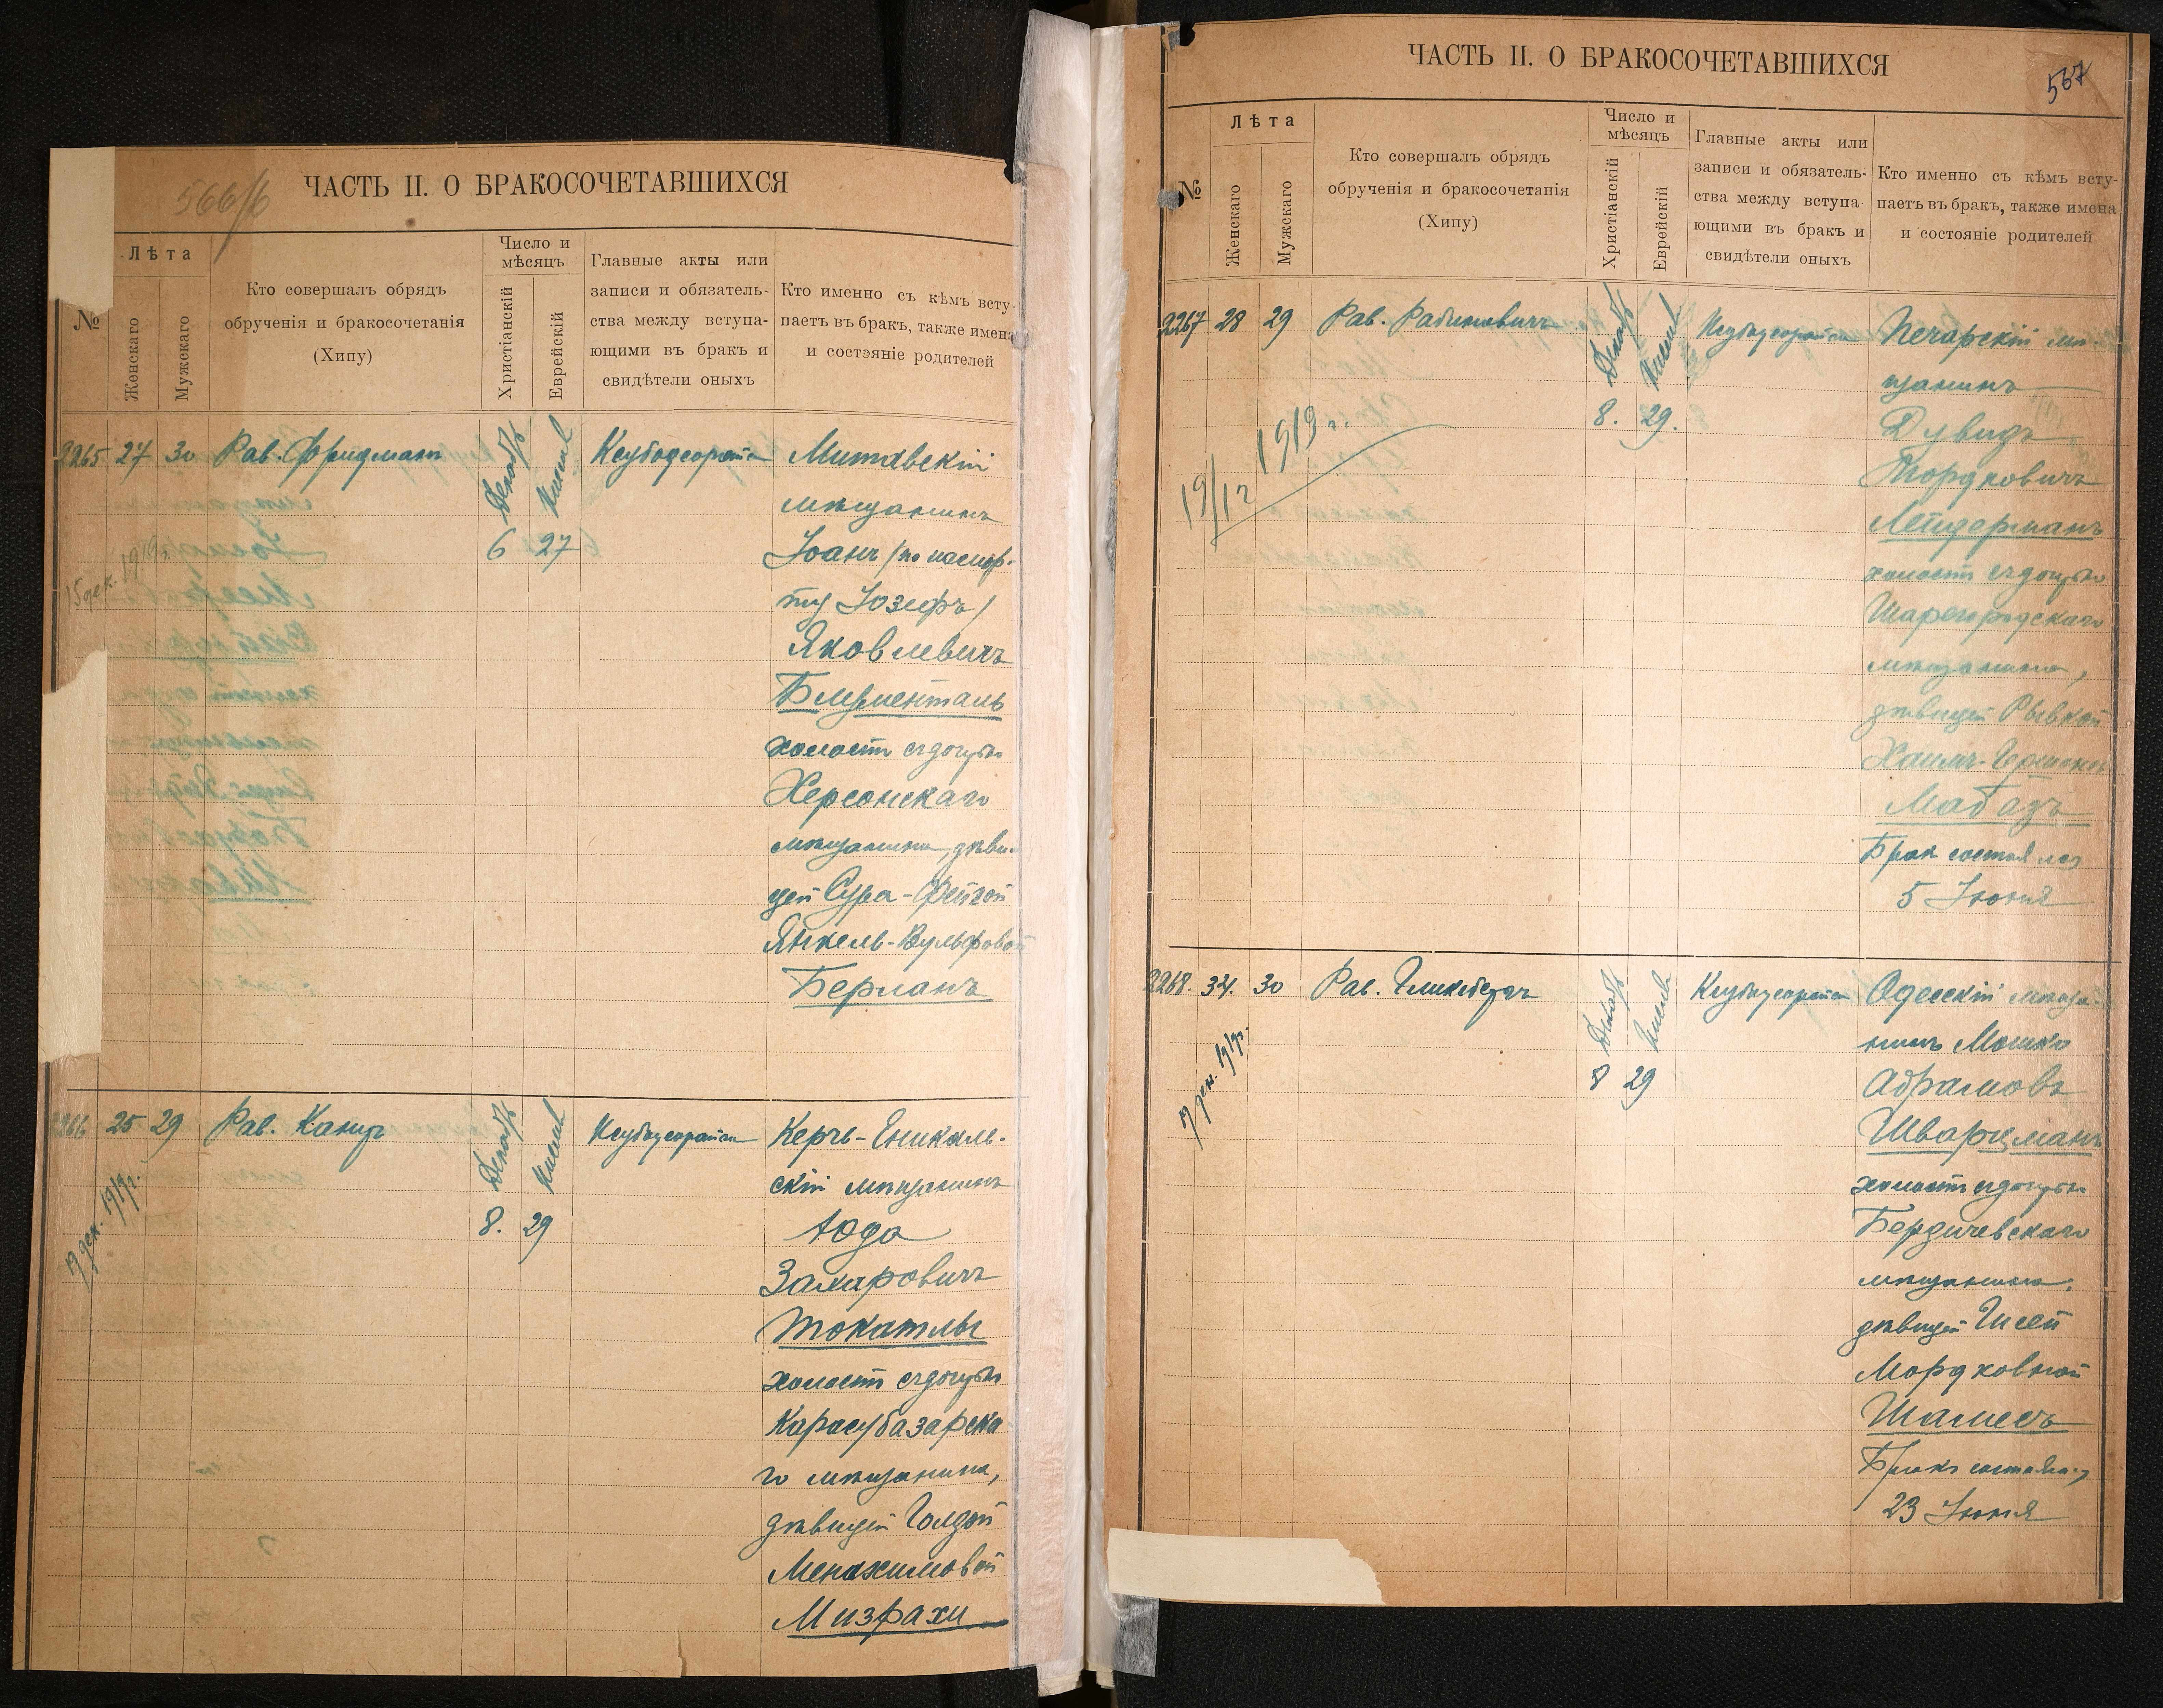 566/б
ЧАСТЬ II. О БРАКОСОЧЕТАВШИХСЯ
№
Лѣта
Женскаго
Мужскаго
Кто совершалъ обрядъ
обрученія и бракосочетанія
(Хипу)
Число и
мѣсяцъ
Христіанскій
Еврейскій
Главные акты или
записи и обязатель-
ства между вступа-
ющими въ бракъ и
свидѣтели оныхъ
Кто именно съ кѣмъ всту-
паетъ въ бракъ, также имена
и состояніе родителей
2265 27 30 Рав. Фридманъ
Декабрь
Кислев
6 27
Ксубодеорайса
15 дек. 1919 г.
Митавскій
мѣщанинъ
Іоанъ /по паспор-
ту Іозефъ/
Яковлевичъ
Блументаль
холостъ съ дочерью
Херсонскаго
мѣщанина, дѣви-
цей Сура-Фейгой
Янкель-Вульфовой
Берманъ
2266 25 29 Рав. Канцъ
Декабрь
Кислев
8. 29
Ксубодеорайса
17 дек. 1919 г.
Керчь-Еникаль-
скій мѣщанинъ
Юда
Захаровичъ
Токатлы
холостъ съ дочерью
Карасубазарска
го мѣщанина,
дѣвицей Голдой
Менахимовой
Мизрахи
567
ЧАСТЬ II. О БРАКОСОЧЕТАВШИХСЯ
№
Лѣта
Женскаго
Мужскаго
Кто совершалъ обрядъ
обрученія и бракосочетанія
(Хипу)
Число и
мѣсяцъ
Христіанскій
Еврейскій
Главные акты или
записи и обязатель-
ства между вступа-
ющими въ бракъ и
свидѣтели оныхъ
Кто именно съ кѣмъ всту-
паетъ въ бракъ, также имена
и состояніе родителей
2267 28 29 Рав. Рабиновичъ
Декабрь
Кислев
8. 29.
Ксубодеорайса
19/12 1919 г.
Печарскій мѣ-
щанинъ
Дувидъ
Мордковичъ
Лейдерманъ
холостъ съ дочерью
Шаргородскаго
мѣщанина,
дѣвицей Рывкой
Хаимъ-Гершоновой
Мабазъ
Бракъ состоялся
5 Іюня
2268. 34. 30 Рав. Гликсбергъ
Декабрь
Кислев
8 29
Ксубодеорайса
17 дек. 1919 г.
Одесскій мѣща-
нинъ Мошко
Абрамовъ
Шварцманъ
холостъ съ дочерью
Бердичевскаго
мѣщанина,
дѣвицей Гисей
Мордковной
Шамесъ
Бракъ состоялся
23 Іюня